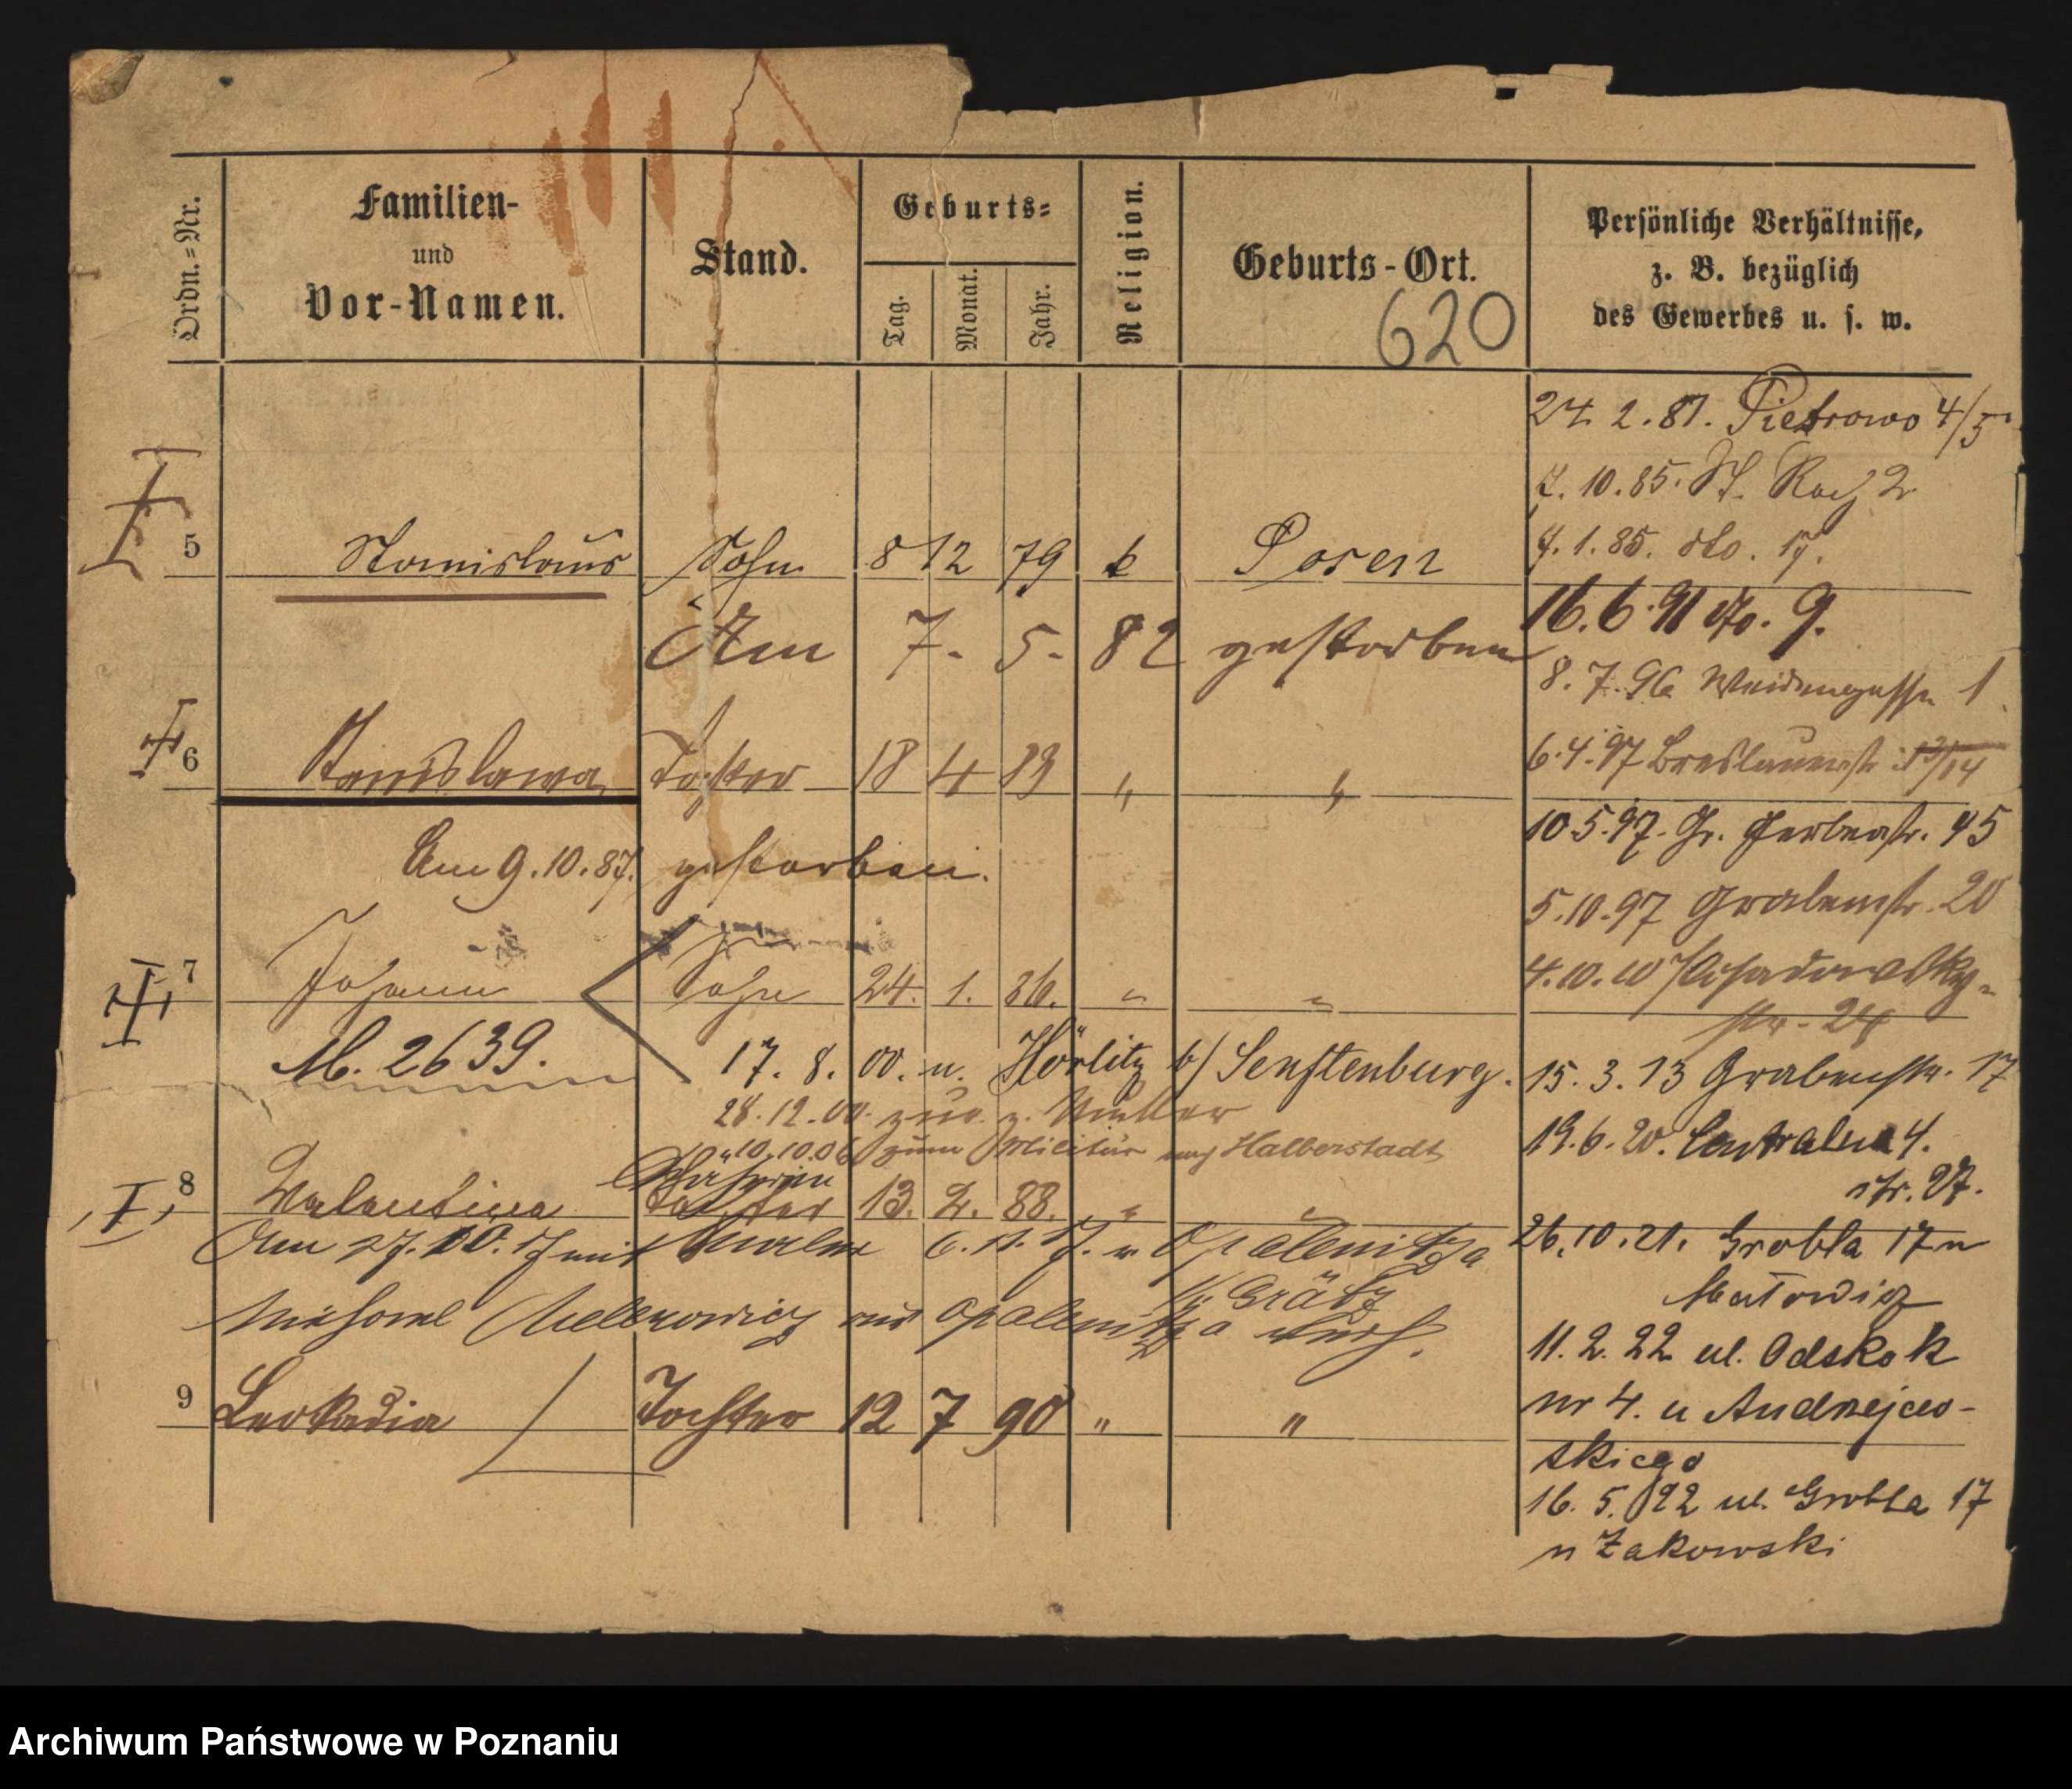 Ordn.=Nr.
Familien-
und
Vor-Namen.
Stand.
Geburts=
Tag.
Monat.
Jahr.
Religion.
Geburts-Ort.
620
Persönliche Verhältnisse,
z. B. bezüglich
des Gewerbes u. s. w.
24. 2. 81. Pietrowo 4/5
7. 10. 85. St. Roch 2
7. 1. 85. dto. 17.
5 Stanislaus Sohn 8 12 79 k Posen
16. 6. 91 dto. 9.
Am 7. 5. 82 gestorben
8. 7. 96 Weidengasse 1
6 Stanislawa Tochter 18 4 83 " "
6. 4. 97 Breslauerstr. 13/14
10. 5. 97. Gr. Gerberstr. 45
Am 9. 10. 87. gestorben.
5. 10. 97 Grabenstr. 20
7 Johann Sohn 24. 1. 86. " "
4. 10. 10 Posadowsky-
str. 24
M. 2639.
17. 8. 00. n. Hörlitz b/ Senftenburg.
15. 3. 13 Grabenstr. 17
28. 12. 00. zur. z. Mutter
10. 10. 06 zum Militär nach Halberstadt
19. 6. 20. 4.
str. 27.
8 Valentina Tochter 13. 2. 88. " "
Am 27. 10. 17 mit 6. 11. 17. n Opalenitza
b/ Grätz
aus Opalenitza durch.
26. 10. 21. Grobla 17 u
11. 2. 22 ul. Odskok
nr 4. u Andrzejew-
skiego
9 Leokadia Tochter 12 7 90 " "
16. 5. 22 ul. Grobla 17
u Żakowski
Archiwum Państwowe w Poznaniu